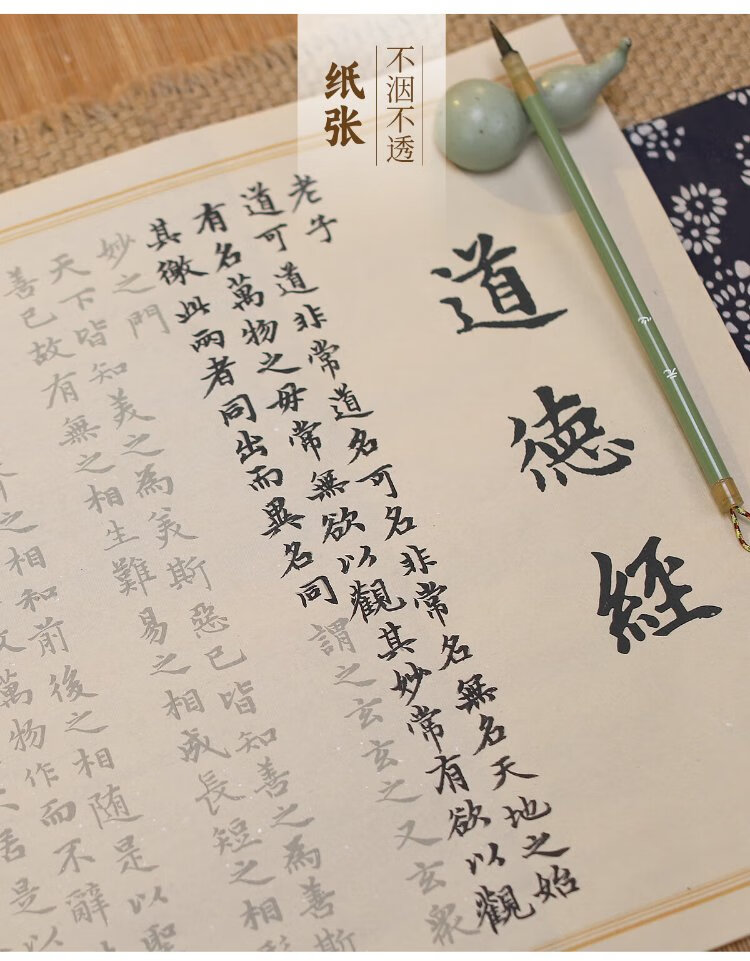 纸张
不洇不透
道德經
老子
道可道非常道名可名非常名無名天地之始
有名萬物之母常無欲以觀其妙常有欲以觀
其徼此兩者同出而異名同謂之玄玄之又玄衆
妙之門
天下皆知美之為美斯惡已皆知善之為善斯
善已故有無之相生難易之相成長短之相
之相和前後之相随是以聖
萬物作而不辭
是以